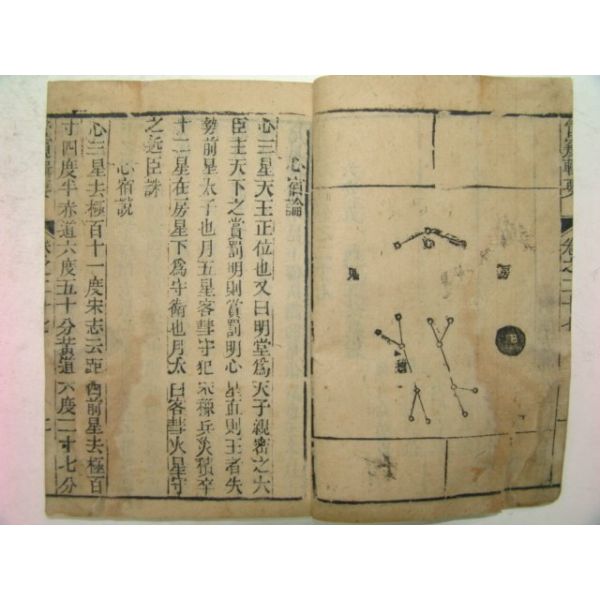 心宿論
心三星天王正位也又曰明堂爲天子親密之六
臣主天下之賞罰明則賞罰明心星直則王者失
勢前星太子也月五星客彗守犯 兵災積卒
十二星在房星下爲守衛也月太白客彗火星守
之近臣誅
心宿說
心三星去極百十一度宋志云距西前星去極百
寸四度半赤道六度五十分黃道六度二寸七分
卷之二十七